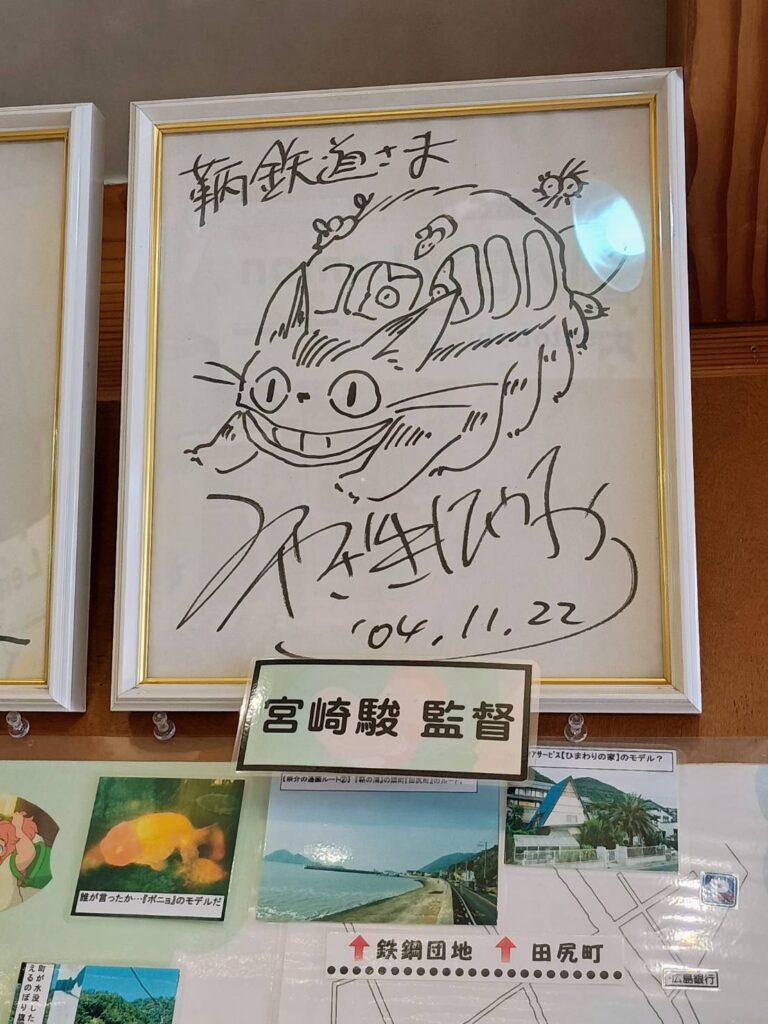 鞆鉄道さま
みやざきはやお
'04.11.22
宮崎駿 監督
アサービス【ひまわりの家】のモデル?
誰が言ったか…『ポニョ』のモデルだ
鉄鋼団地 田尻町
広島銀行
町が水没した
えるのぼり旗